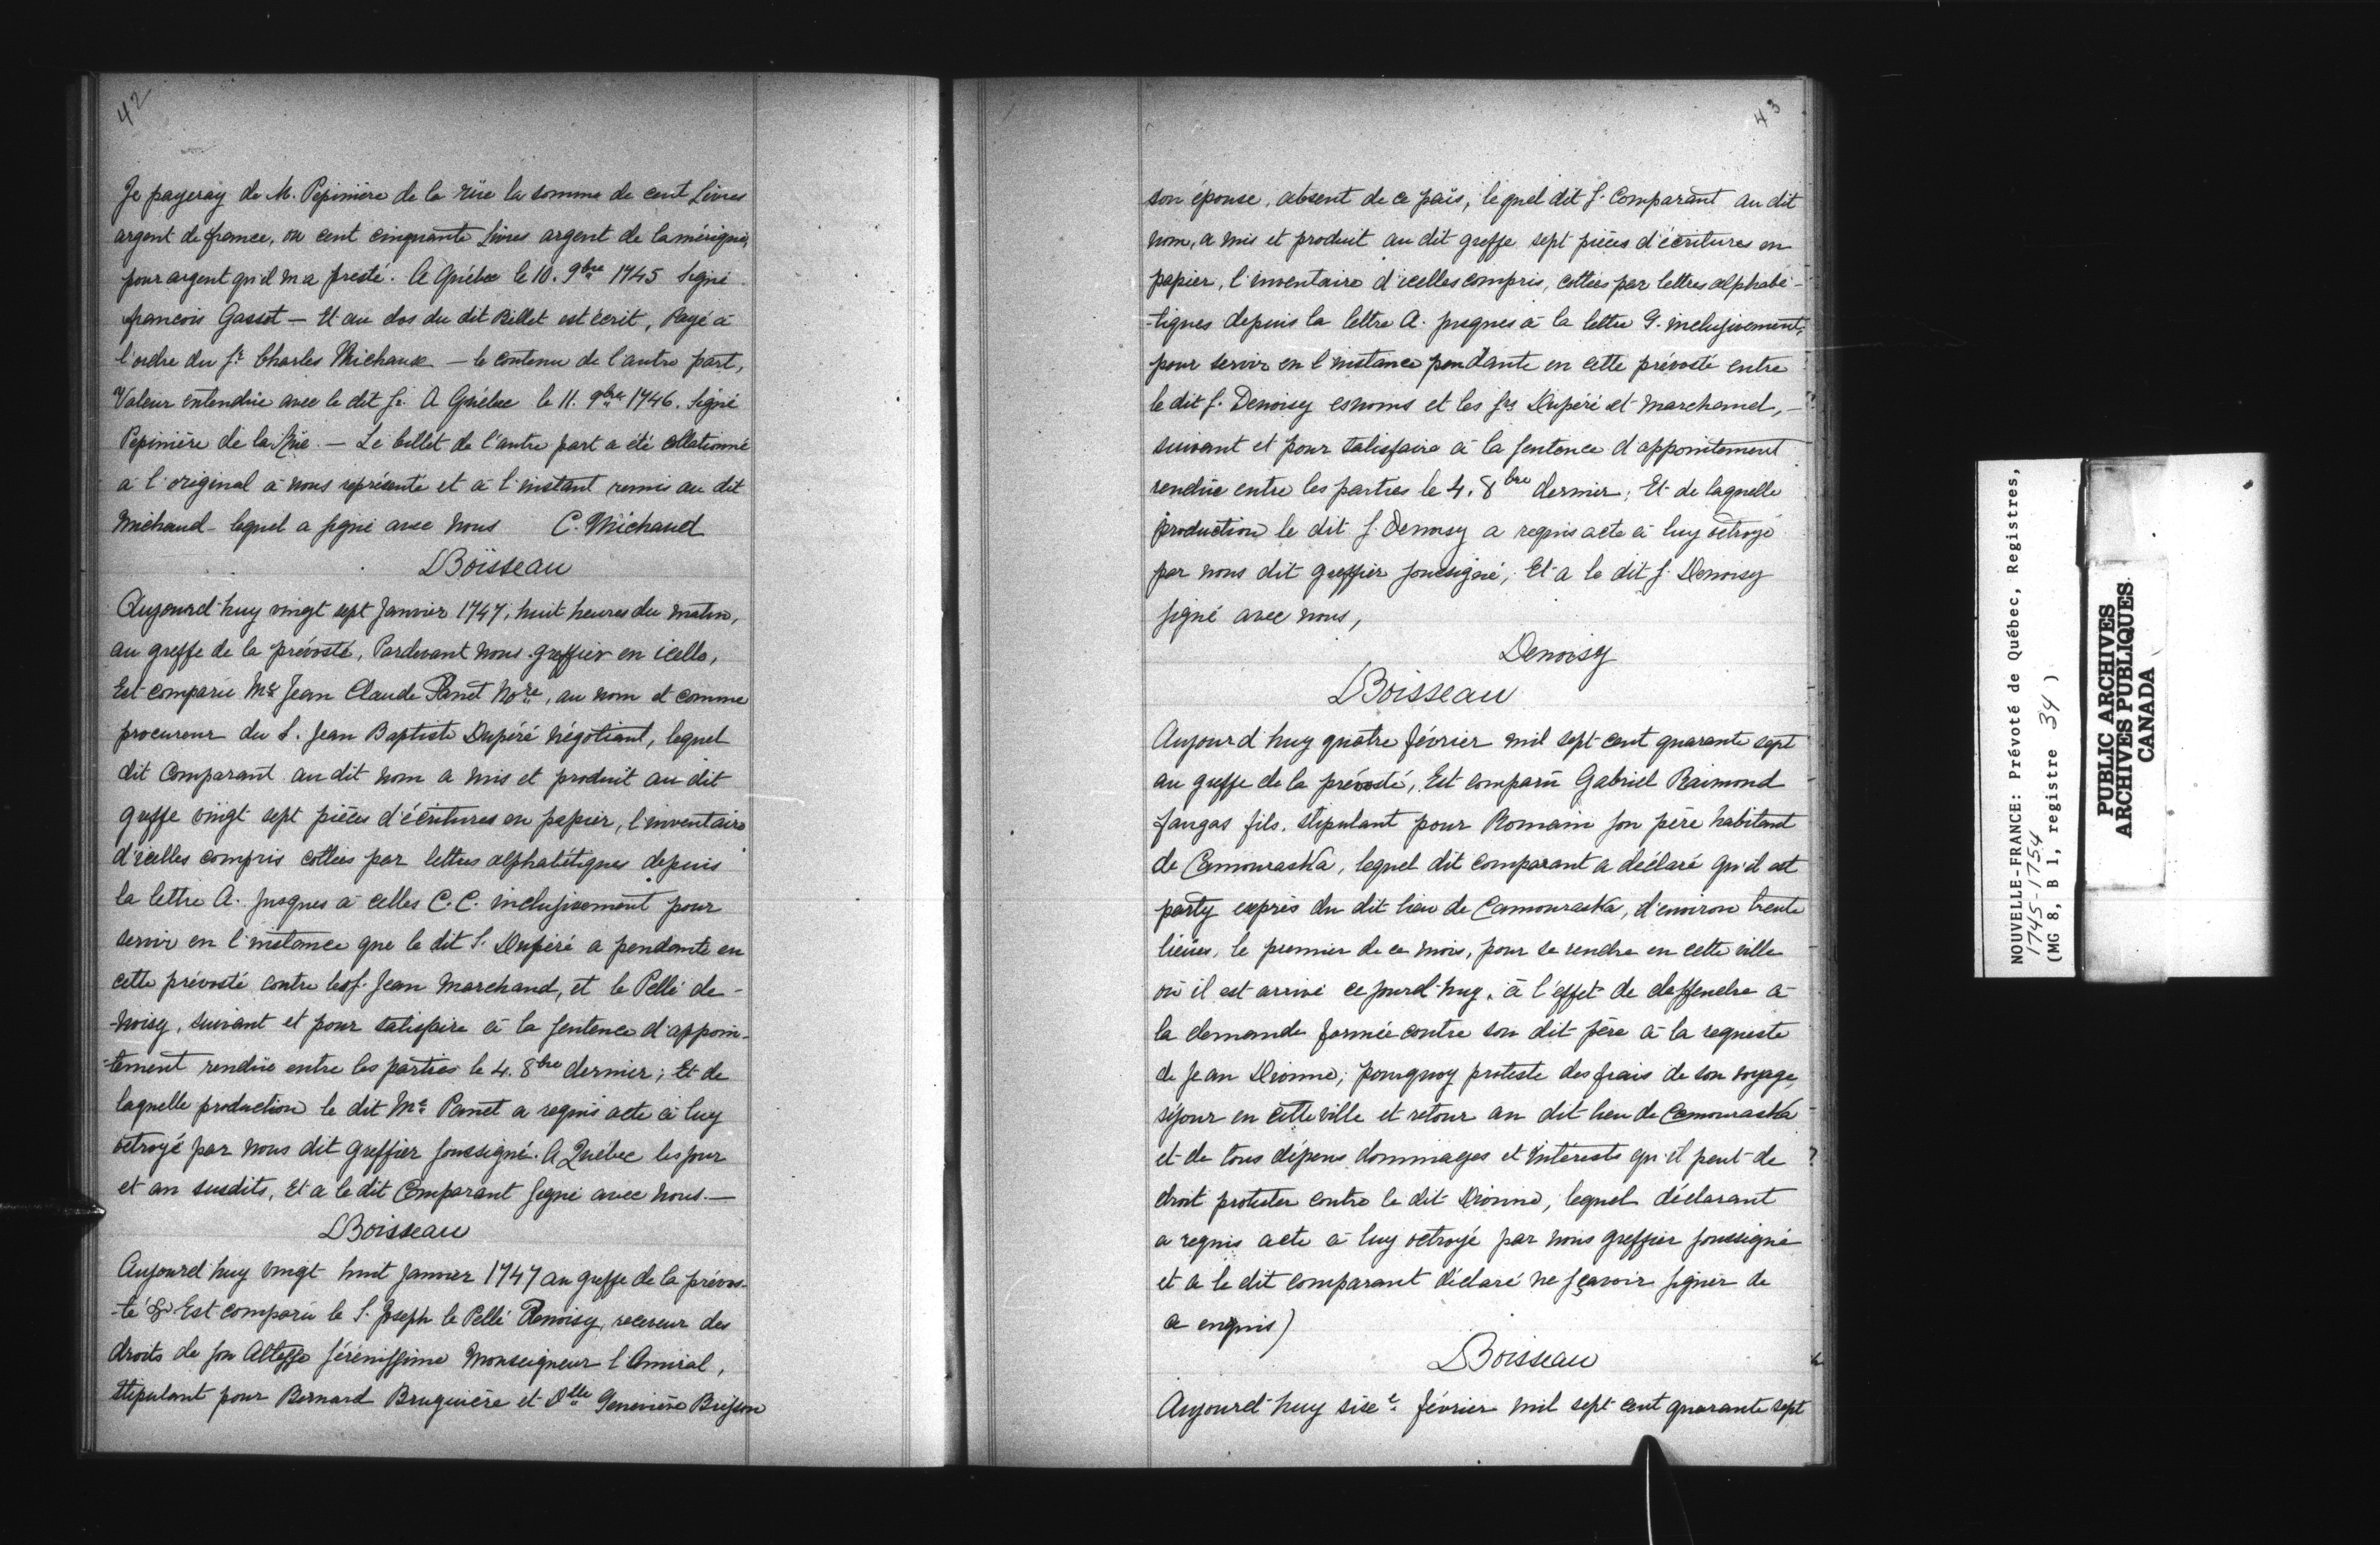 42
Je payeray de M. Pepinière de la rüe la somme de cent Livres
argent de france, ou cent cinquante livres argent de lamérique,
pour argent qu'il m'a presté. A Québec le 10. 9bre 1745 signé
francois Gassot — Et au dos du dit Billet est écrit, Payé à
l'ordre du Sr. Charles Michaux — le contenu de l'autre part,
Valeur entendüe avec le dit Sr. A Québec le 11. 9bre 1746. Signé
Pepinière de la Rüe. — Le billet de l'autre part a été collationné
à l'original à nous représenté et à l'instant remis au dit
Michaud lequel a signé avec nous C. Michaud
LBoisseau
Aujourd'huy vingt sept Janvier 1747, huit heures du matin,
au greffe de la prévosté, Pardevant nous greffier en icelle,
Est comparu Me Jean Claude Panet Nore, au nom et comme
procureur du S. Jean Baptiste Dupéré négotiant, lequel
dit Comparant au dit nom a mis et produit au dit
greffe vingt sept pièces d'écritures en papier, l'inventaire
d'icelles compris cottées par lettres alphabétiques depuis
la lettre A. jusques à celles C.C. inclusivement pour
servir en l'instance que le dit S. Dupéré a pendante en
cette prévosté contre les S. Jean Marchand, et le Pellé de-
-noisy, suivant et pour satisfaire à la sentence d'appoin-
-tement rendüe entre les parties le 4. 8bre dernier; Et de
laquelle production le dit Me Panet a requis acte à luy
octroyé par nous dit greffier soussigné. A Québec les jour
et an susdits, Et a le dit Comparant signé avec nous. —
LBoisseau
Aujourd'huy vingt huit Janvier 1747 au greffe de la prévos-
-té & Est comparu le S. Joseph le Pellé Denoisy, receveur des
droits de son Altesse sérénissime Monseigneur l'Amiral,
stipulant pour Bernard Bruguière et Dlle Geneviève Brisson
43
son épouse, absent de ce païs, lequel dit S. Comparant au dit
nom, a mis et produit au dit greffe sept pièces d'écritures en
papier, l'inventaire d'icelles compris, cottées par lettres alphabé-
-tiques depuis la lettre A. jusques à la lettre G. inclusivement,
pour servir en l'instance pendante en cette prévosté entre
le dit S. Denoisy esnoms et les Srs Dupéré et Marchand, —
suivant et pour satisfaire à la sentence d'appointement
rendüe entre les parties le 4. 8bre dernier; Et de laquelle
production le dit S. Denoisy a requis acte à luy octroyé
par nous dit greffier soussigné; Et a le dit S. Denoisy
signé avec nous,
Denoisy
LBoisseau
Aujourd'huy quatre février mil sept cent quarante sept
au greffe de la prévosté, Est comparu Gabriel Raimond
fangas fils, stipulant pour Romain son père habitant
de CamourasKa, lequel dit comparant a déclaré qu'il est
party exprès du dit lieu de CamourasKa, d'environ trente
lieües, le premier de ce mois, pour se rendre en cette ville
où il est arrivé ce jourd'huy, à l'effet de deffendre à
la demande formée contre son dit père à la requeste
de Jean Dionne; pourquoy proteste des frais de son voyage,
séjour en cette ville et retour au dit lieu de CamourasKa
et de tous dépens dommages et intérests qu'il peut de ?
droit protester contre le dit Dionne, lequel déclarant
a requis acte à luy octroyé par nous greffier soussigné
et a le dit comparant déclaré ne sçavoir signer de
ce enquis)
LBoisseau
Aujourd'huy sixe. février mil sept cent quarante sept
NOUVELLE-FRANCE: Prévoté de Québec, Registres,
1745-1754
(MG 8, B 1, registre 34 )
PUBLIC ARCHIVES
ARCHIVES PUBLIQUES
CANADA